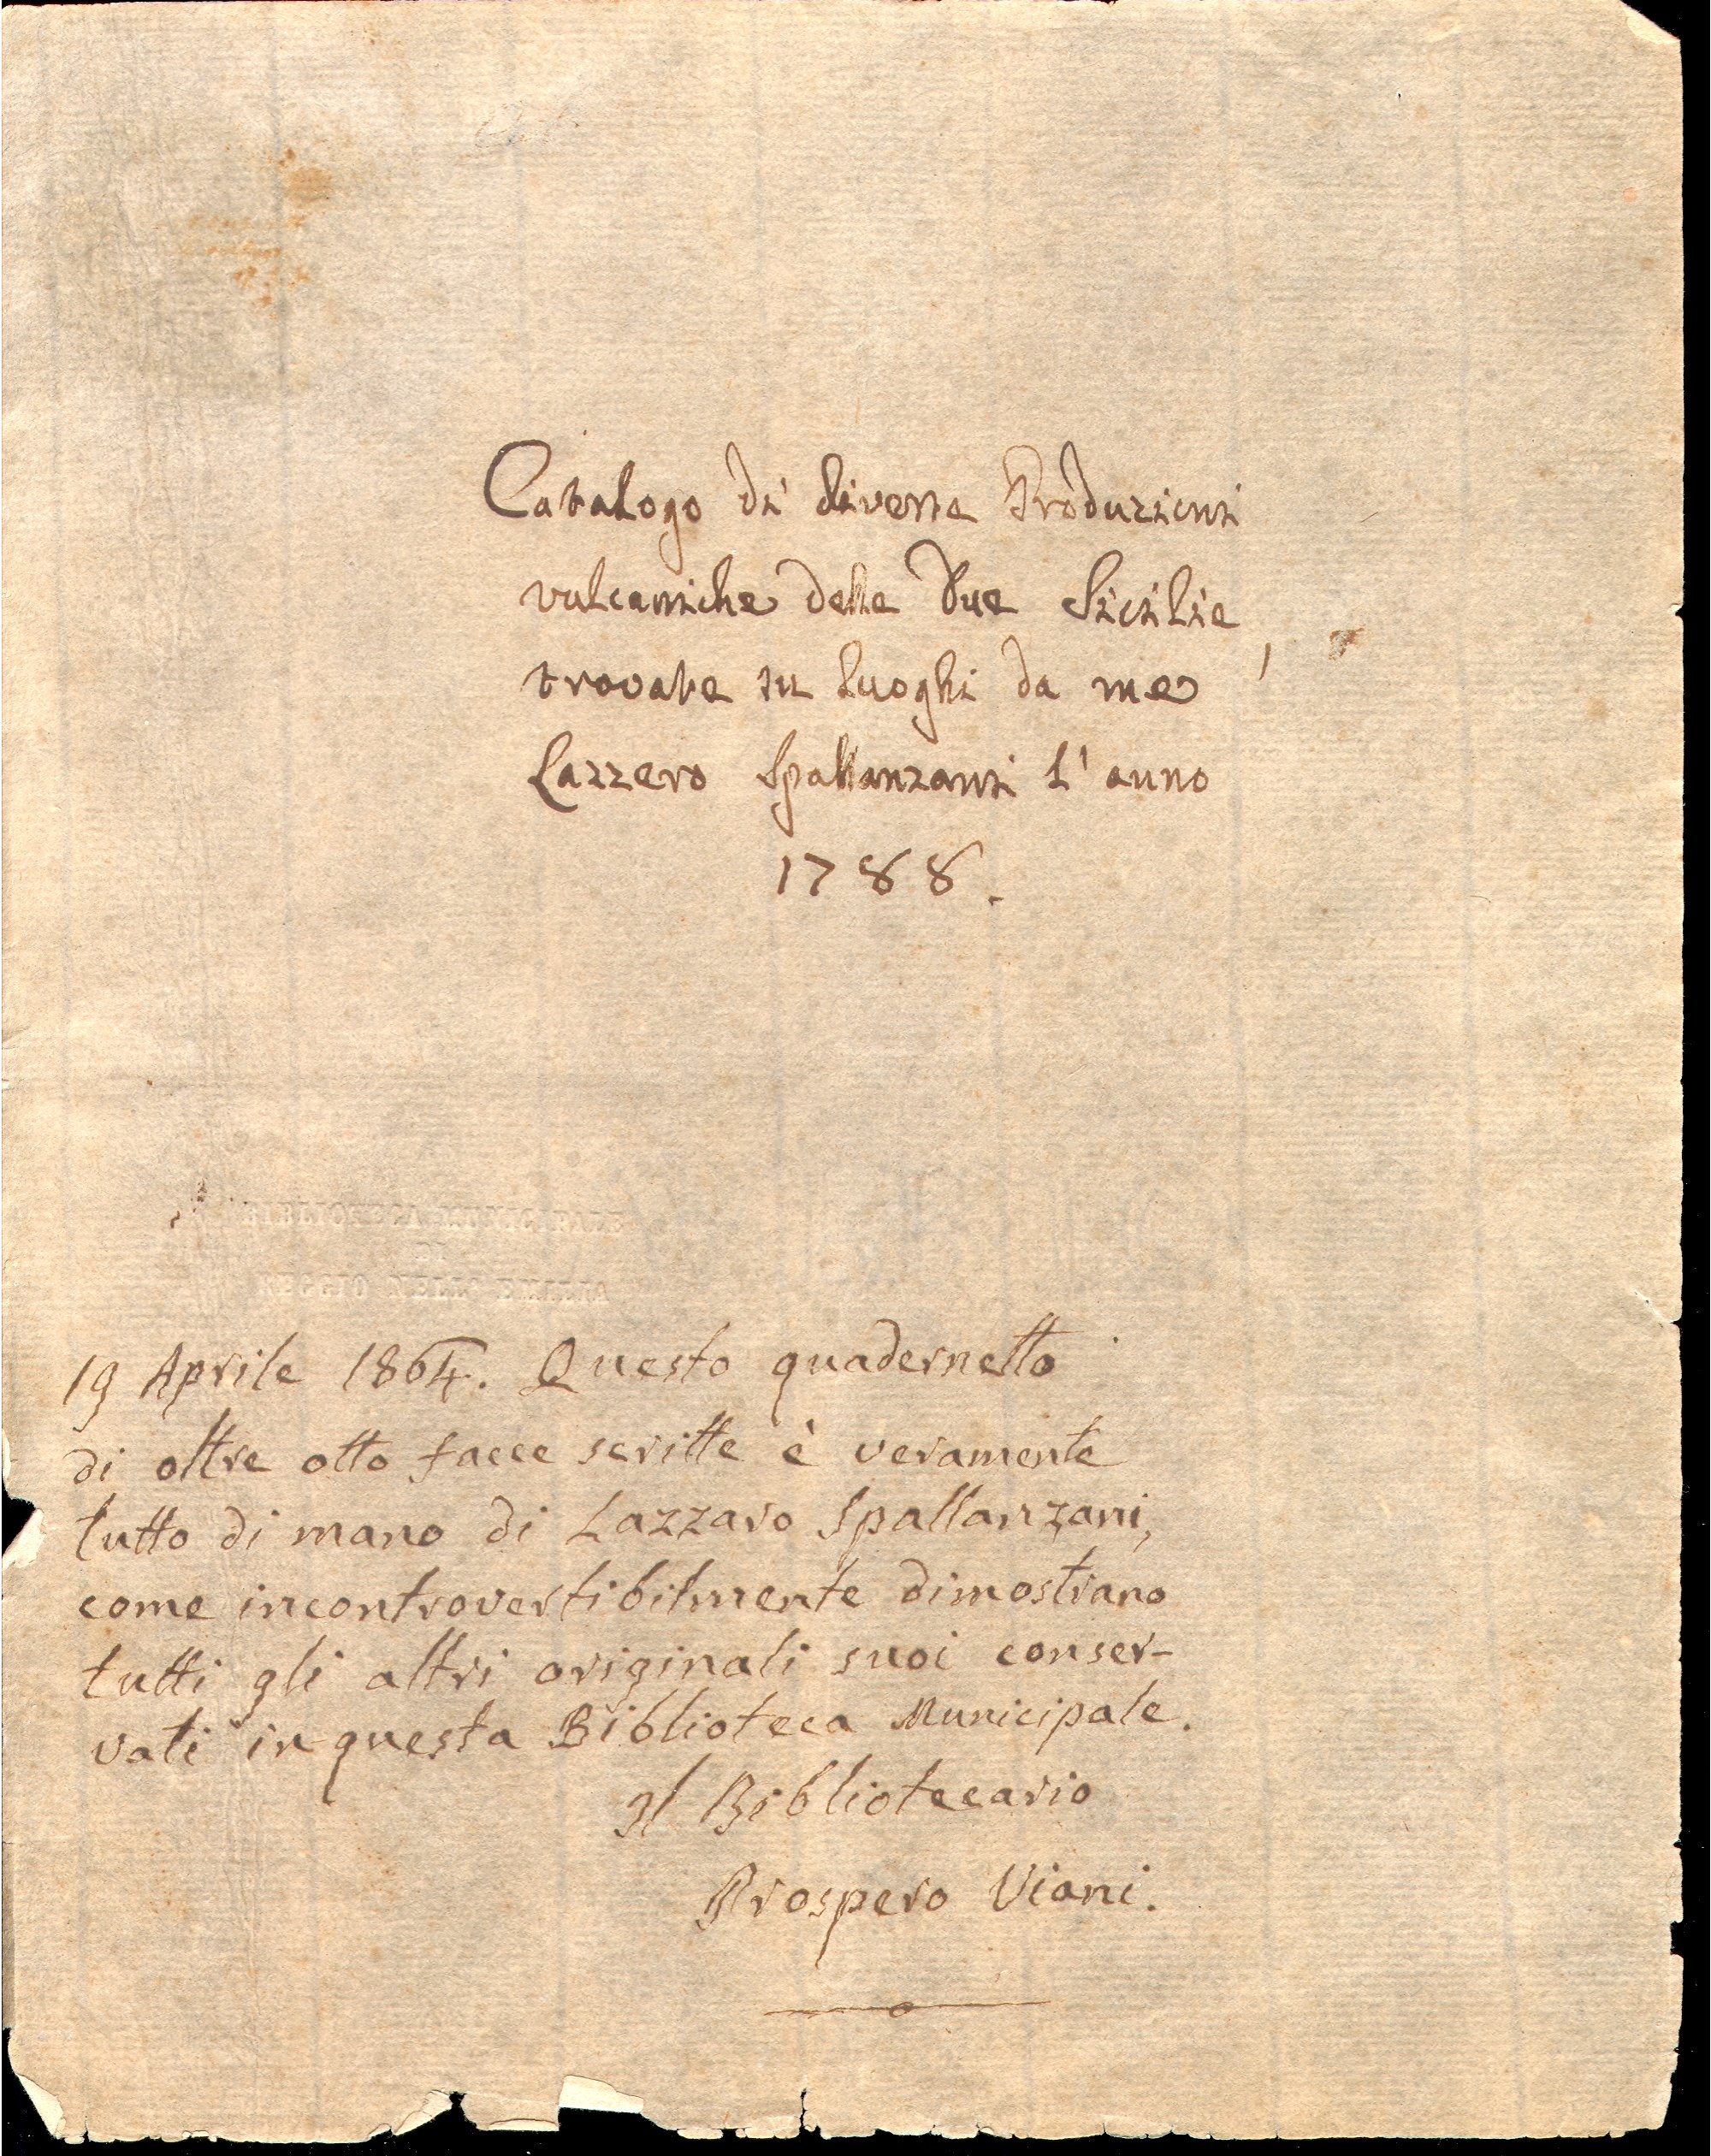 Catalogo di diverse Produzioni
vulcaniche delle Due Sicilie
trovate su luoghi da me
Lazzero Spallanzani l'anno
1788.
19 Aprile 1864. Questo quadernetto
di oltre otto facce scritte è veramente
tutto di mano di Lazzaro Spallanzani,
come incontrovertibilmente dimostrano
tutti gli altri originali suoi conser-
vati in questa Biblioteca Municipale.
Il Bibliotecario
Prospero Viani.